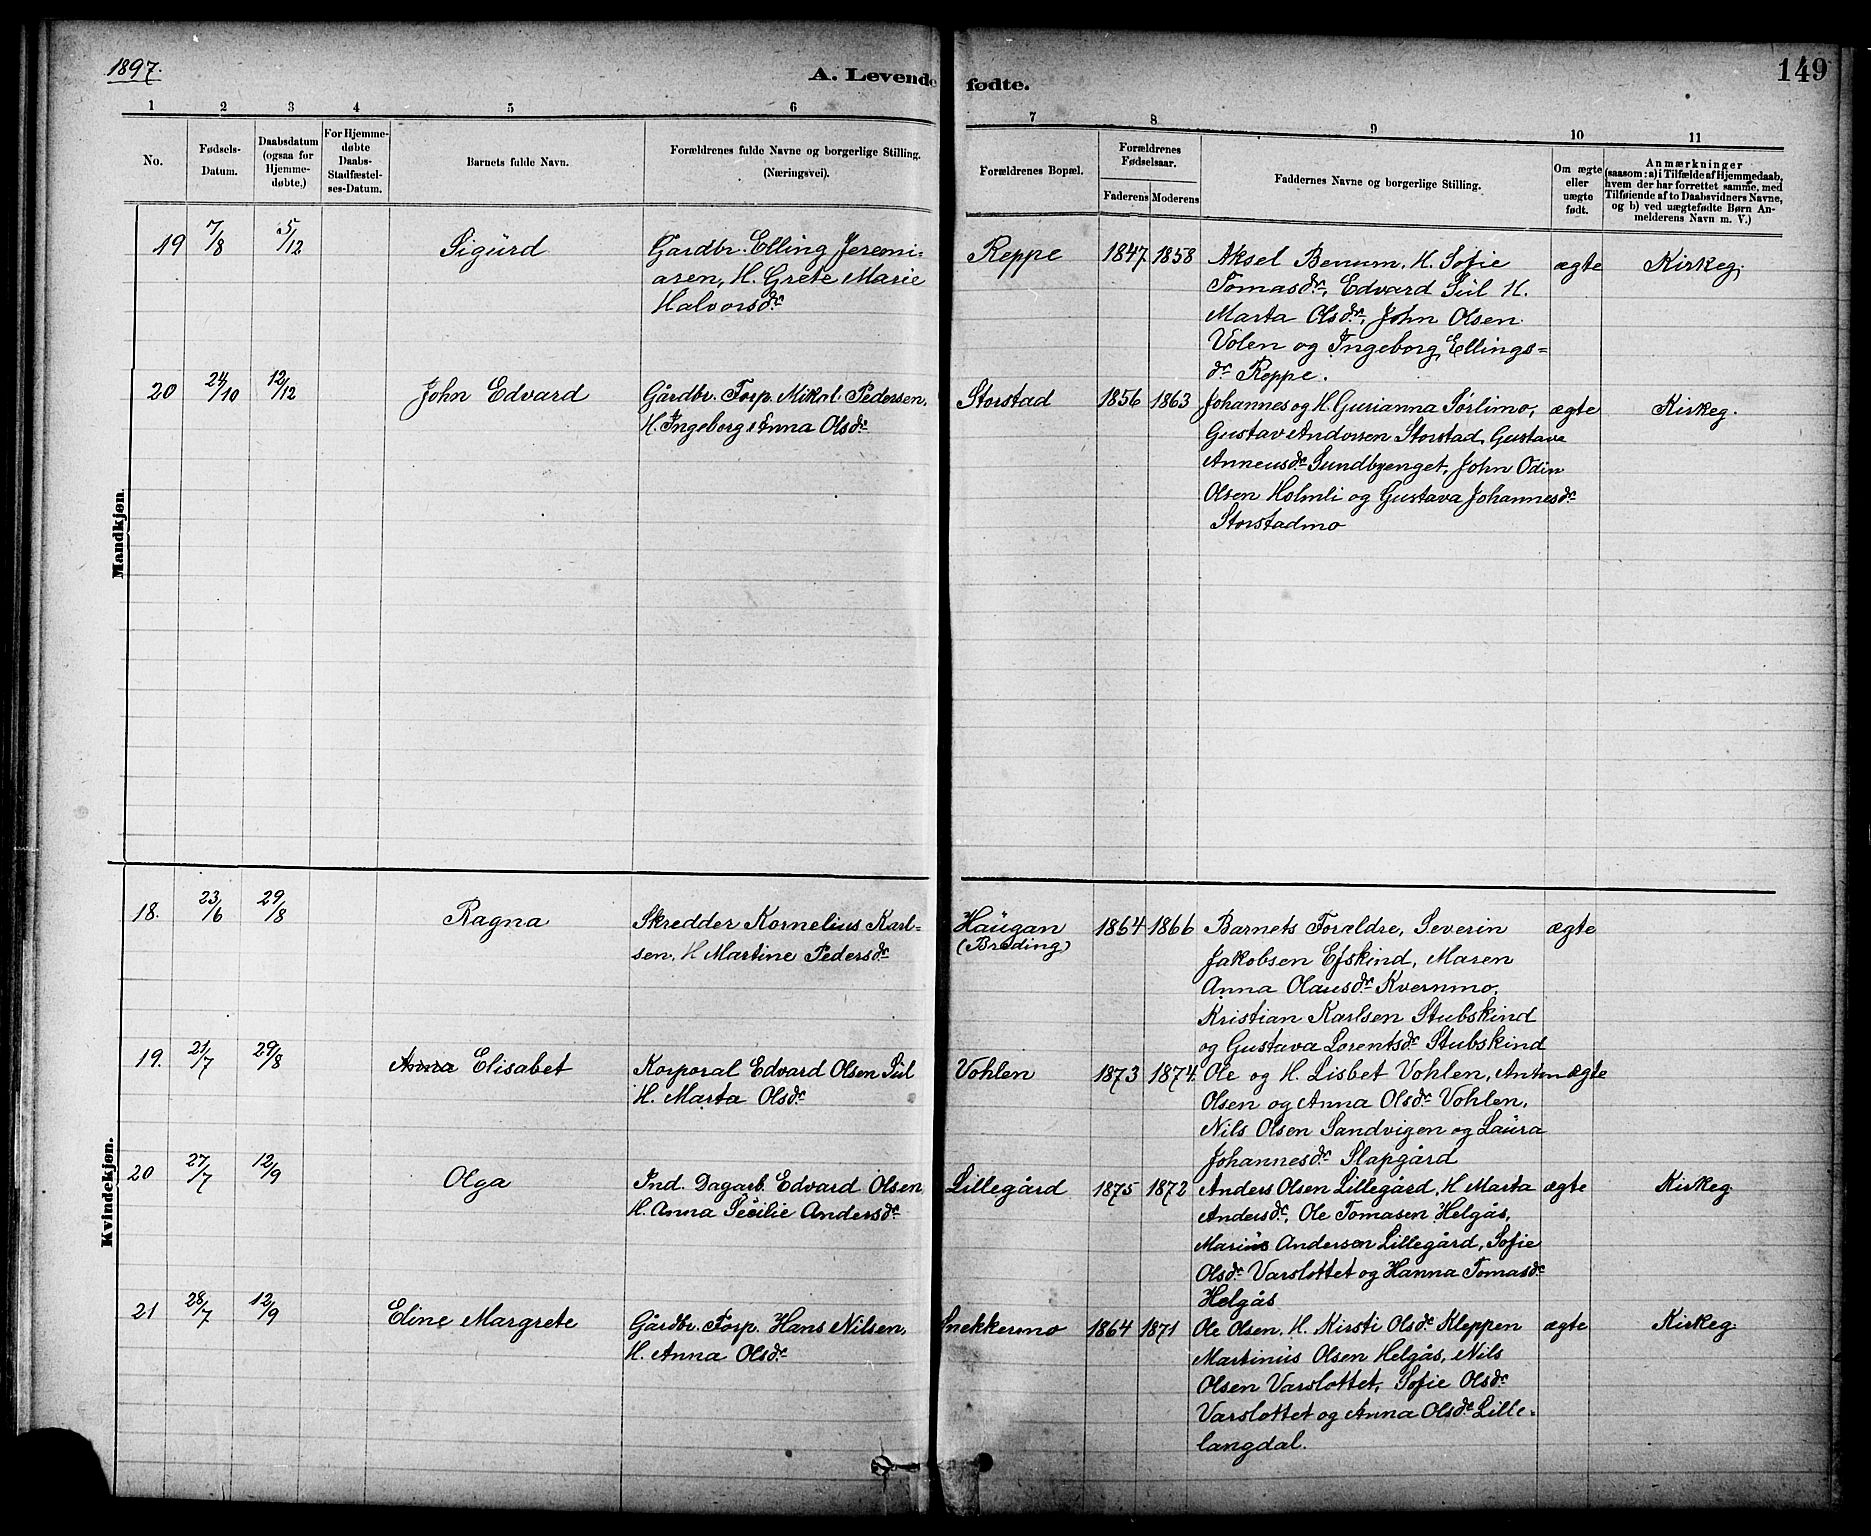 1897.
A. Levende fødte.
149
1 2 3 4 5 6 7 8 9 10 11
No.
Fødsels-
Datum.
Daabsdatum
(ogsaa for
Hjemme-
døbte.)
For Hjemme-
døbte
Daabs-
Stadfæstel-
ses-Datum.
Barnets fulde Navn.
Forældrenes fulde Navne og borgerlige Stilling.
(Næringsvei).
Forældrenes Bopæl.
Forældrenes
Fødselsaar.
Faderens Moderens
Faddernes Navne og borgerlige Stilling.
Om ægte
eller
uægte
født.
Anmærkninger
(saasom: a) i Tilfælde af Hjemmedaab,
hvem der har forrettet samme, med
Tilføiende af to Daabsvidners Navne,
og b) ved uægtefødte Børn An-
melderens Navn m. V.)
Mandkjøn.
19 7/8 5/12 Sigurd
Gardbr. Elling Jeremi-
asen, H. Grete Marie
Halvorsdr
Reppe 1847 1858
Aksel Benum, H. Sofie
Tomasdr, Edvard Sul H.
Marta Olsdr, John Olsen
Volen og Ingeborg Ellings=
dr Reppe.
ægte Kirkeg.
20 24/10 12/12 John Edvard
Gårdbr. Forp. Mikal Pedersen,
H. Ingeborg Anna Olsdr
Storstad 1856 1863
Johannes og H. Gurianna Sørlimo,
Gustav Andersen Storstad, Gustava
Anneusdr Sundbyenget, John Odin
Olsen Holmli og Gustava Johannesdr
Storstadmo
ægte Kirkeg.
Kvindekjøn.
18. 23/6 29/8 Ragna
Skredder Kornelius Karl-
sen, H Martine Pedersdr
Haugan
(Breding)
1864 1866
Barnets Forældre, Severin
Jakobsen Efskind, Maren
Anna Olausdr Kvernmo,
Kristian Karlsen Stubskind
og Gustava Lorentsdr Stubskind
ægte
19. 21/7 29/8 Anna Elisabet
Korporal Edvard Olsen Sul
H. Marta Olsdr
Vohlen 1873 1874
Ole og H. Lisbet Vohlen, Anton
Olsen og Anna Olsdr Vohlen,
Nils Olsen Sandvigen og Laura
Johannesdr Slapgård
ægte
20 27/7 12/9 Olga
Ind. Dagarb. Edvard Olsen
H. Anna Secilie Andersdr
Lillegård 1875 1872
Anders Olsen Lillegård, H Marta
Andersdr, Ole Tomasen Helgås,
Marius Andersen Lillegård, Sofie
Olsdr Varslottet og Hanna Tomasdr
Helgås
ægte Kirkeg
21 28/7 12/9 Eline Margrete
Gårdbr. Forp. Hans Nilsen,
H. Anna Olsdr
Snekkermo 1864 1871
Ole Olsen, H. Kirsti Olsdr Kleppen
Martinus Olsen Helgås, Nils
Olsen Varslottet, Sofie Olsdr
Varslottet og Anna Olsdr Lille-
langdal.
ægte Kirkeg.